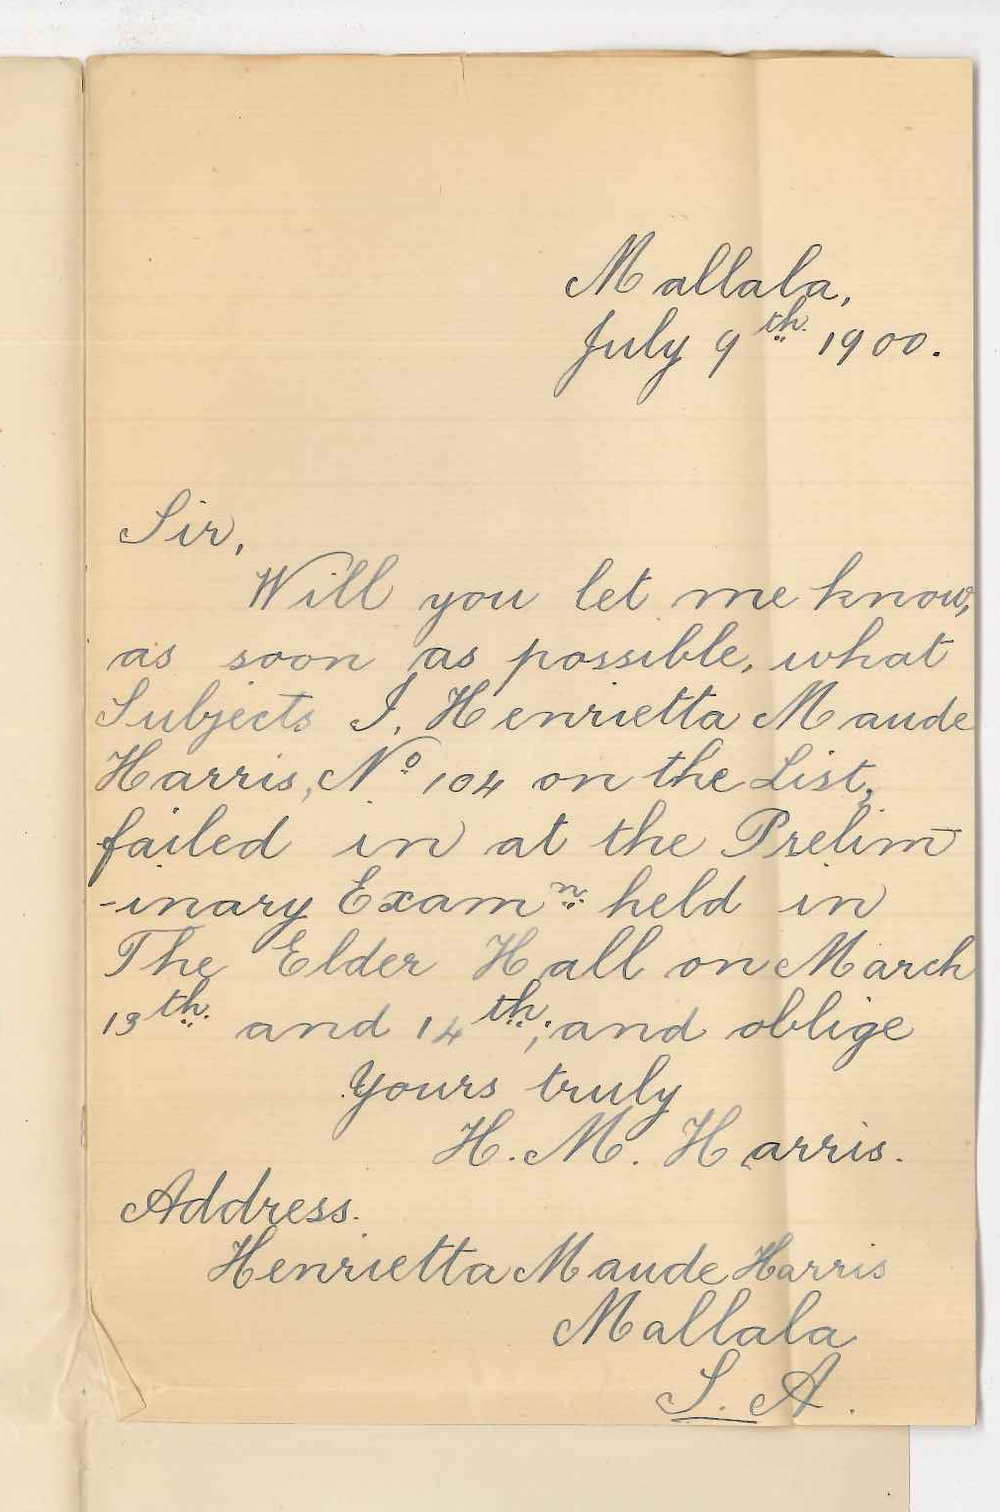 Mallala,
July 9th. 1900.
Sir,
Will you let me know,
as soon as possible, what
Subjects I, Henrietta Maude
Harris, No 104 on the List,
failed in at the Prelim
-inary Examn. held in
The Elder Hall on March
13th. and 14th.; and oblige
Yours truly
H. M. Harris.
Address.
Henrietta Maude Harris
Mallala
S. A.